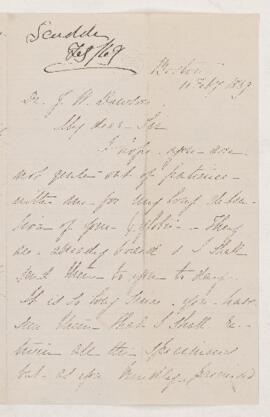 Scudder
Feb /69
Boston
11 Feb'y 1869
Dr. J. W. Dawson
My dear Sir
I hope you are
not quite out of patience
with me for my long deten-
tion of your fossils. They
are already boxed & I shall
send them to you to day.
It is so long since you have
seen them that I shall re-
tain all the specimens
but as you